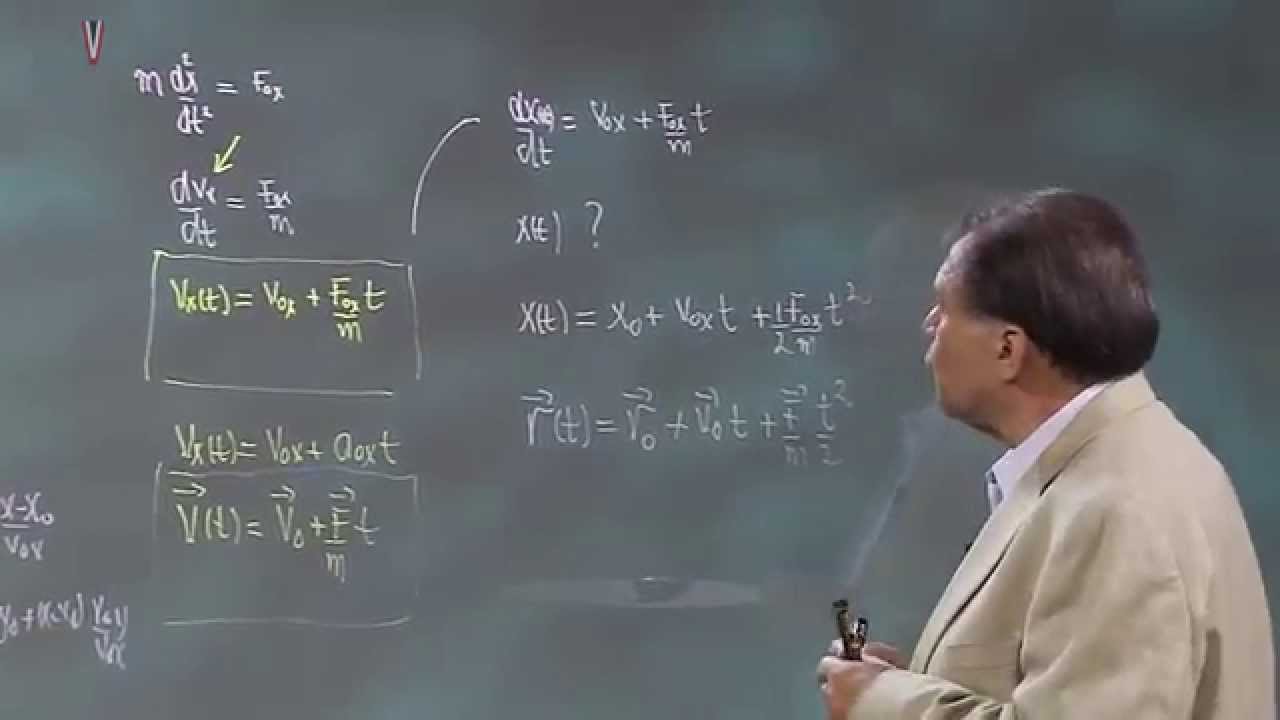 V
m d²x/dt² = F₀ₓ
dvₓ/dt = F₀ₓ/m
Vₓ(t) = V₀ₓ + F₀ₓ/m t
Vₓ(t) = V₀ₓ + a₀ₓ t
V⃗(t) = V⃗₀ + F⃗/m t
x-x₀/v₀ₓ
dx(t)/dt = V₀ₓ + F₀ₓ/m t
x(t) ?
x(t) = x₀ + V₀ₓ t + 1/2 F₀ₓ/m t²
r⃗(t) = r⃗₀ + V⃗₀ t + F⃗/m t²/2